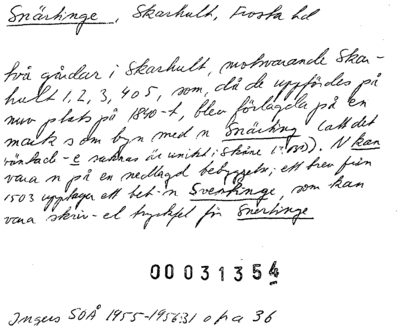 Snärtinge, Skarhult, Frosta hd
två gårdar i Skarhult, motsvarande Skar-
hult 1, 2, 3, 4 o 5, som, då de uppfördes på
nuv plats på 1840-t, blev förlagda på en
mark som byn med n Snärting (att det
väntade -e saknas är unikt i Skåne). N kan
vara n på en nedlagd bebyggelse; ett brev från
1503 upptager ett bet-n Sventinge, som kan
vara skriv- el tryckfel för Snertinge
00031354
Ingers SOÅ 1955-1956:31 o fra 36